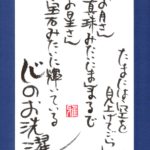 たまには空を
見上げてごらん
お月さん
真珠みたいだまあるで
お星さん
宝石みたいに輝いてる
心のお洗濯